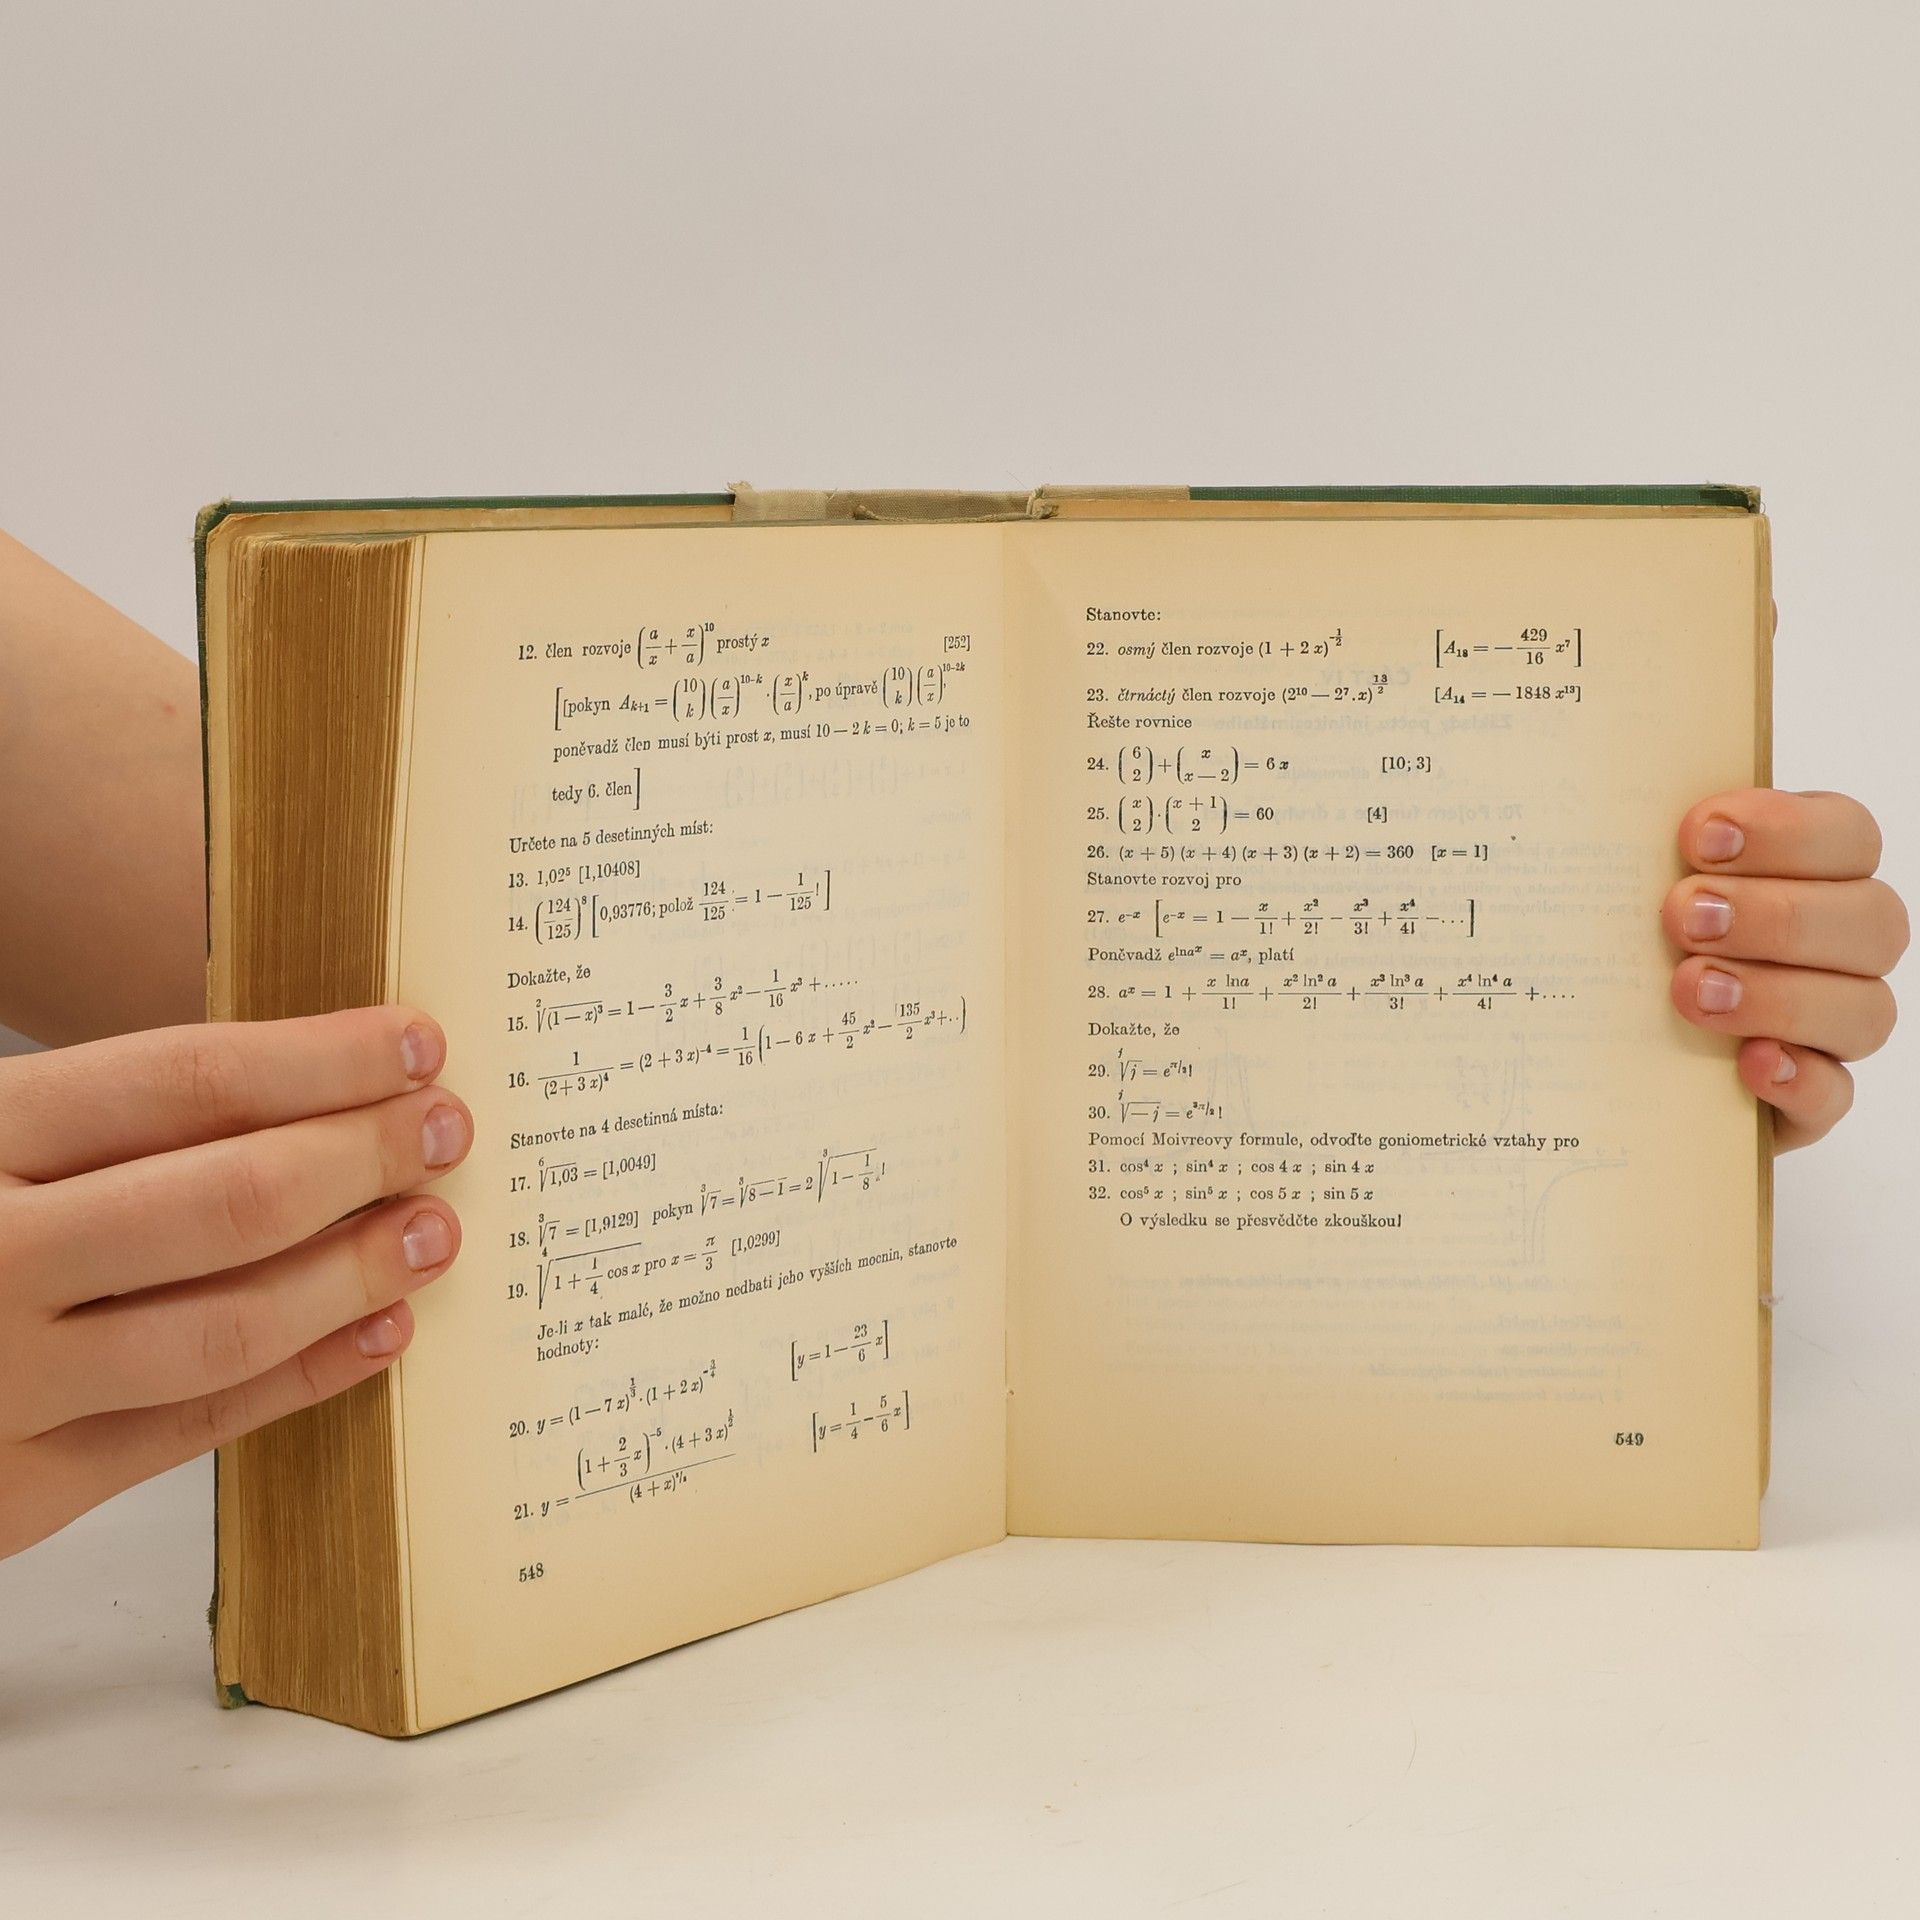 12. člen rozvoje (a/x + x/a)^10 prostý x [252]
[[pokyn A_{k+1} = (10 k) (a/x)^{10-k} · (x/a)^k, po úpravě (10 k) (a/x)^{10-2k},
poněvadž člen musí býti prost x, musí 10 — 2 k = 0; k = 5 je to
tedy 6. člen]
Určete na 5 desetinných míst:
13. 1,02⁵ [1,10408]
14. (124/125)^8 [0,93776; polož 124/125 = 1 — 1/125!]
Dokažte, že
15. ²√(1 — x)³ = 1 — 3/2 x + 3/8 x² — 1/16 x³ + .....
16. 1/(2 + 3 x)⁴ = (2 + 3 x)⁻⁴ = 1/16 (1 — 6 x + 45/2 x² — 135/2 x³ + ..)
Stanovte na 4 desetinná místa:
17. ⁶√1,03 = [1,0049]
18. ³√7 = [1,9129] pokyn ³√7 = ³√8 — 1 = 2 ³√1 — 1/8!
19. ⁴√1 + 1/4 cos x pro x = π/3 [1,0299]
Je-li x tak malé, že možno nedbati jeho vyšších mocnin, stanovte
hodnoty:
20. y = (1 — 7 x)^{1/3} · (1 + 2 x)^{-3/4} [y = 1 — 23/6 x]
21. y = (1 + 2/3 x)^{-5} · (4 + 3 x)^{1/2} / (4 + x)^{3/2} [y = 1/4 — 5/6 x]
548
Stanovte:
22. osmý člen rozvoje (1 + 2 x)^{-1/2} [A₁₈ = — 429/16 x⁷]
23. čtrnáctý člen rozvoje (2¹⁰ — 2⁷.x)^{13/2} [A₁₄ = — 1848 x¹³]
Řešte rovnice
24. (6 2) + (x x — 2) = 6 x [10; 3]
25. (x 2) · (x + 1 2) = 60 [4]
26. (x + 5) (x + 4) (x + 3) (x + 2) = 360 [x = 1]
Stanovte rozvoj pro
27. e^{-x} [e^{-x} = 1 — x/1! + x²/2! — x³/3! + x⁴/4! — ...]
Poněvadž e^{lna^x} = a^x, platí
28. a^x = 1 + x lna/1! + x² ln² a/2! + x³ ln³ a/3! + x⁴ ln⁴ a/4! + ....
Dokažte, že
29. ʲ√j = e^{π/2}!
30. ʲ√— j = e^{3π/2}!
Pomocí Moivreovy formule, odvoďte goniometrické vztahy pro
31. cos⁴ x ; sin⁴ x ; cos 4 x ; sin 4 x
32. cos⁵ x ; sin⁵ x ; cos 5 x ; sin 5 x
O výsledku se přesvědčte zkouškou!
549